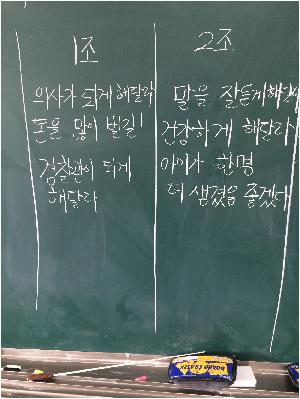 1조
의사가 되게 해달라
돈을 많이 벌길!
경찰관이 되게
해달라
2조
말을 잘듣게해달
건강하게 해달라
아이가 한명
더 생겼음 좋겠다
BOARD ERASER